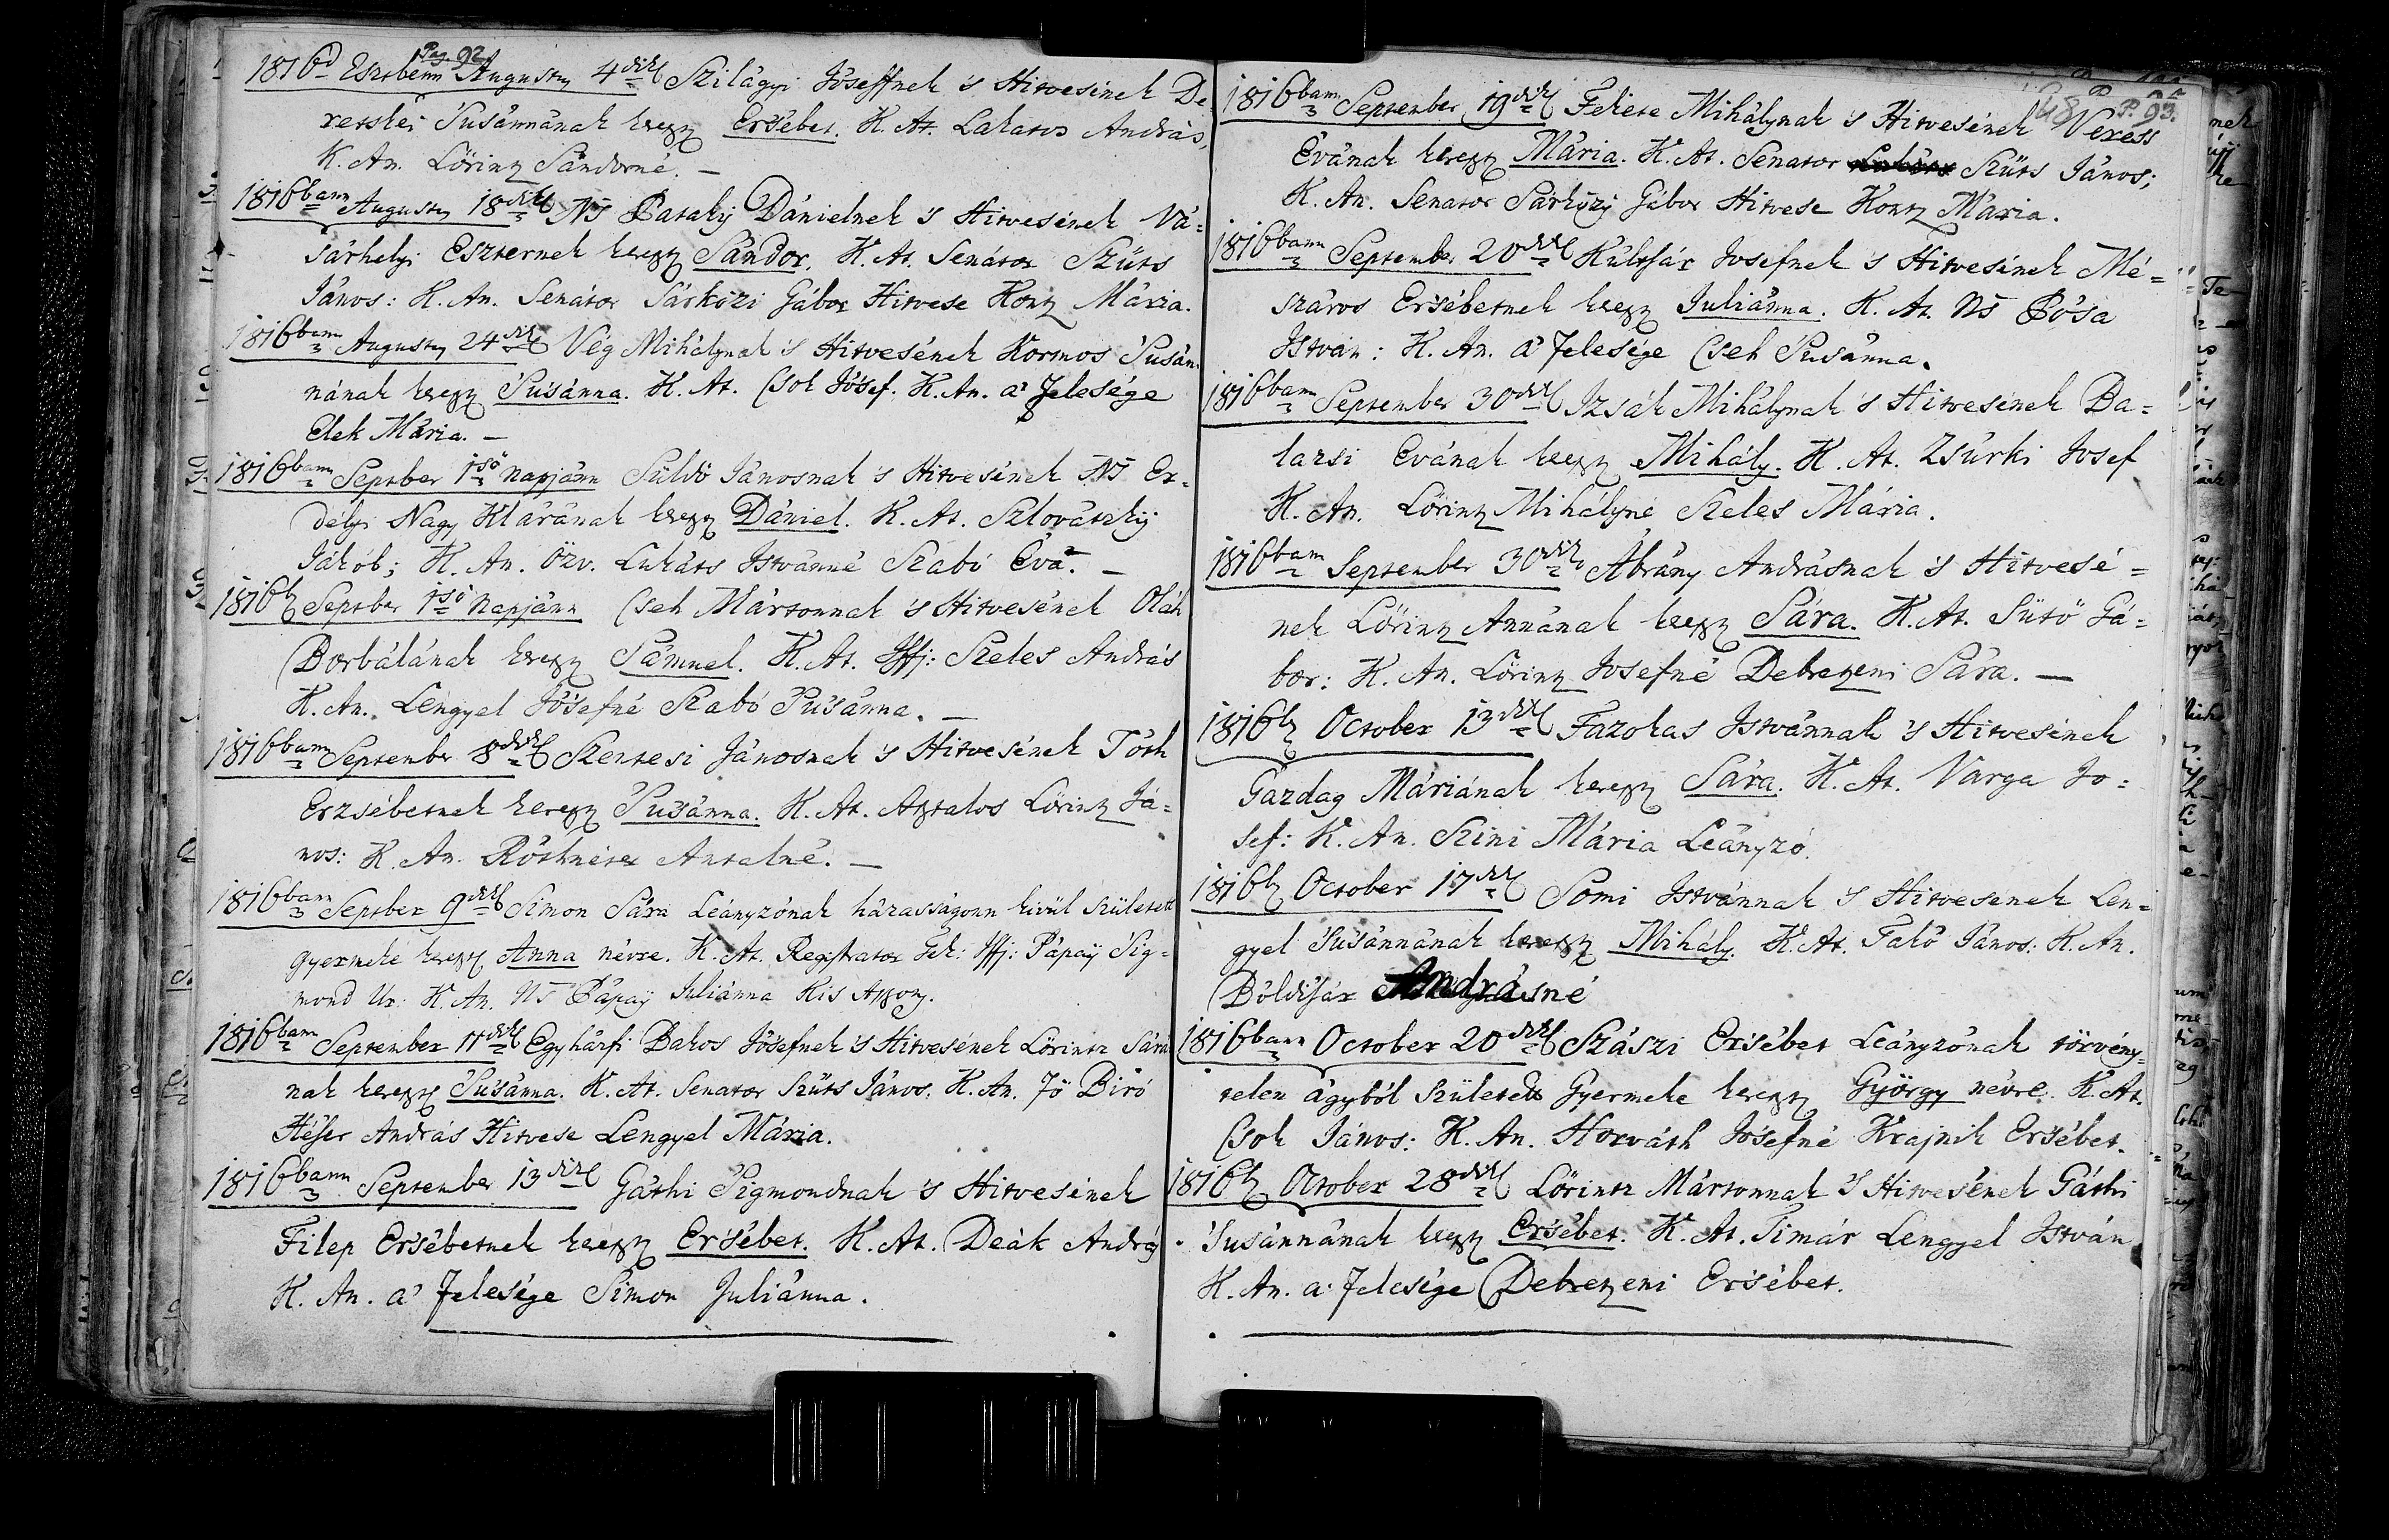 Pag. 92.
1816d Esztbenn Augustus 4dik Szilágyi Jóseffnek 's Hitvesének De-
retskei Susánnának kereszt Ersébet. K. At. Lakatos András,
K. An. Lőrintz Sándorné. —
1816bann Augustus 18dik Ns Pataky Dánielnek 's Hitvesének Vá=
sárhelyi Eszternek kereszt Sándor. K. At. Senátor Szűts
János: K. An. Senátor Sárközi Gábor Hitvese Kontz Mária.
1816bann Augustus 24dik Vég Mihálynak 's Hitvesének Kormos Susán-
nának kereszt Susánna. K. At. Csok Jósef. K. An. a' felesége
Elek Mária. —
1816bann Septber 1ső napjánn Süldő Jánosnak 's Hitvesének Ns Er-
délyi Nagy Klárának kereszt Dániel. K. At. Szlovátsky
Jákób; K. An. Özv. Lukáts Istvánné Szabó Éva. —
1816b Septber 1ső napjánn Cseh Mártonnak 's Hitvesének Oláh
Borbálának kereszt Sámuel. K. At. Iffj: Szeles András
K. An. Lengyel Jósefné Szabó Susánna. —
1816bann September 8dik Szentesi Jánosnak 's Hitvesének Tóth
Erzsébetnek kereszt Susánna. K. At. Asztalos Lőrintz Já=
nos: K. An. Antalné. —
1816bann Septber 9dik Simon Sára Leányzónak házasságonn kivűl született
gyermeke kereszt Anna névre. K. At. Registrator Tek: Iffj: Pápay Sig=
mond Ur: K. An. Ns Pápay Juliánna Kis Asszony.
1816bann September 11dik Egyhárfi Bakos Jósefnek 's Hitvesének Lőrintz Sárá
nak kereszt Susánna. K. At. Senator Szűts János. K. An. Fő Biró
Héser András Hitvese Lengyel Mária.
1816bann September 13dik Gáthi Sigmondnak 's Hitvesének
Filep Ersébetnek kereszt Ersébet. K. At. Deák András
K. An. a' felesége Simon Juliánna.
48 P. 93.
1816bann September 19dik Fekete Mihálynak 's Hitvesének Veress
Évának kereszt Mária. K. At. Senator Szűts János;
K. An. Senator Sárközy Gábor Hitvese Kontz Mária.
1816bann September 20dik Kultsár Josefnek 's Hitvesének Mé=
száros Ersébetnek kereszt Juliánna. K. At. Ns Pósa
István: K. An. a' felesége Cseh Susánna.
1816bann September 30dik Izsák Mihálynak 's Hitvesének Ba=
latsi Evának kereszt Mihály. K. At. Zsúrki Josef
K. An. Lőrintz Mihályné Szeles Mária.
1816bann September 30dik Ábrány Andrásnak 's Hitvesé=
nek Lőrintz Annának kereszt Sára. K. At. Sütő Gá=
bor: K. An. Lőrintz Josefné Debretzeni Sára. —
1816b October 13dik Fazokas Istvánnak 's Hitvesének
Gazdag Máriának kereszt Sára. K. At. Varga Jo=
sef: K. An. Szini Mária Leányzó.
1816b October 17dik Somi Istvánnak 's Hitvesének Len=
gyel Susánnának kereszt Mihály. K. At. Takó János: K. An.
Bóldisár Andrásné
1816bann October 20dik Szászi Ersébet Leányzónak törvény=
telen ágyból született Gyermeke kereszt György névre. K. At.
Csok János: K. An. Horváth Jósefné Krajnik Ersébet.
1816b October 28dik Lőrintz Mártonnak 's Hitvesének Gáthi
Susánnának kereszt Ersébet. K. At. Timár Lengyel István
K. An. a' felesége Debretzeni Ersébet.